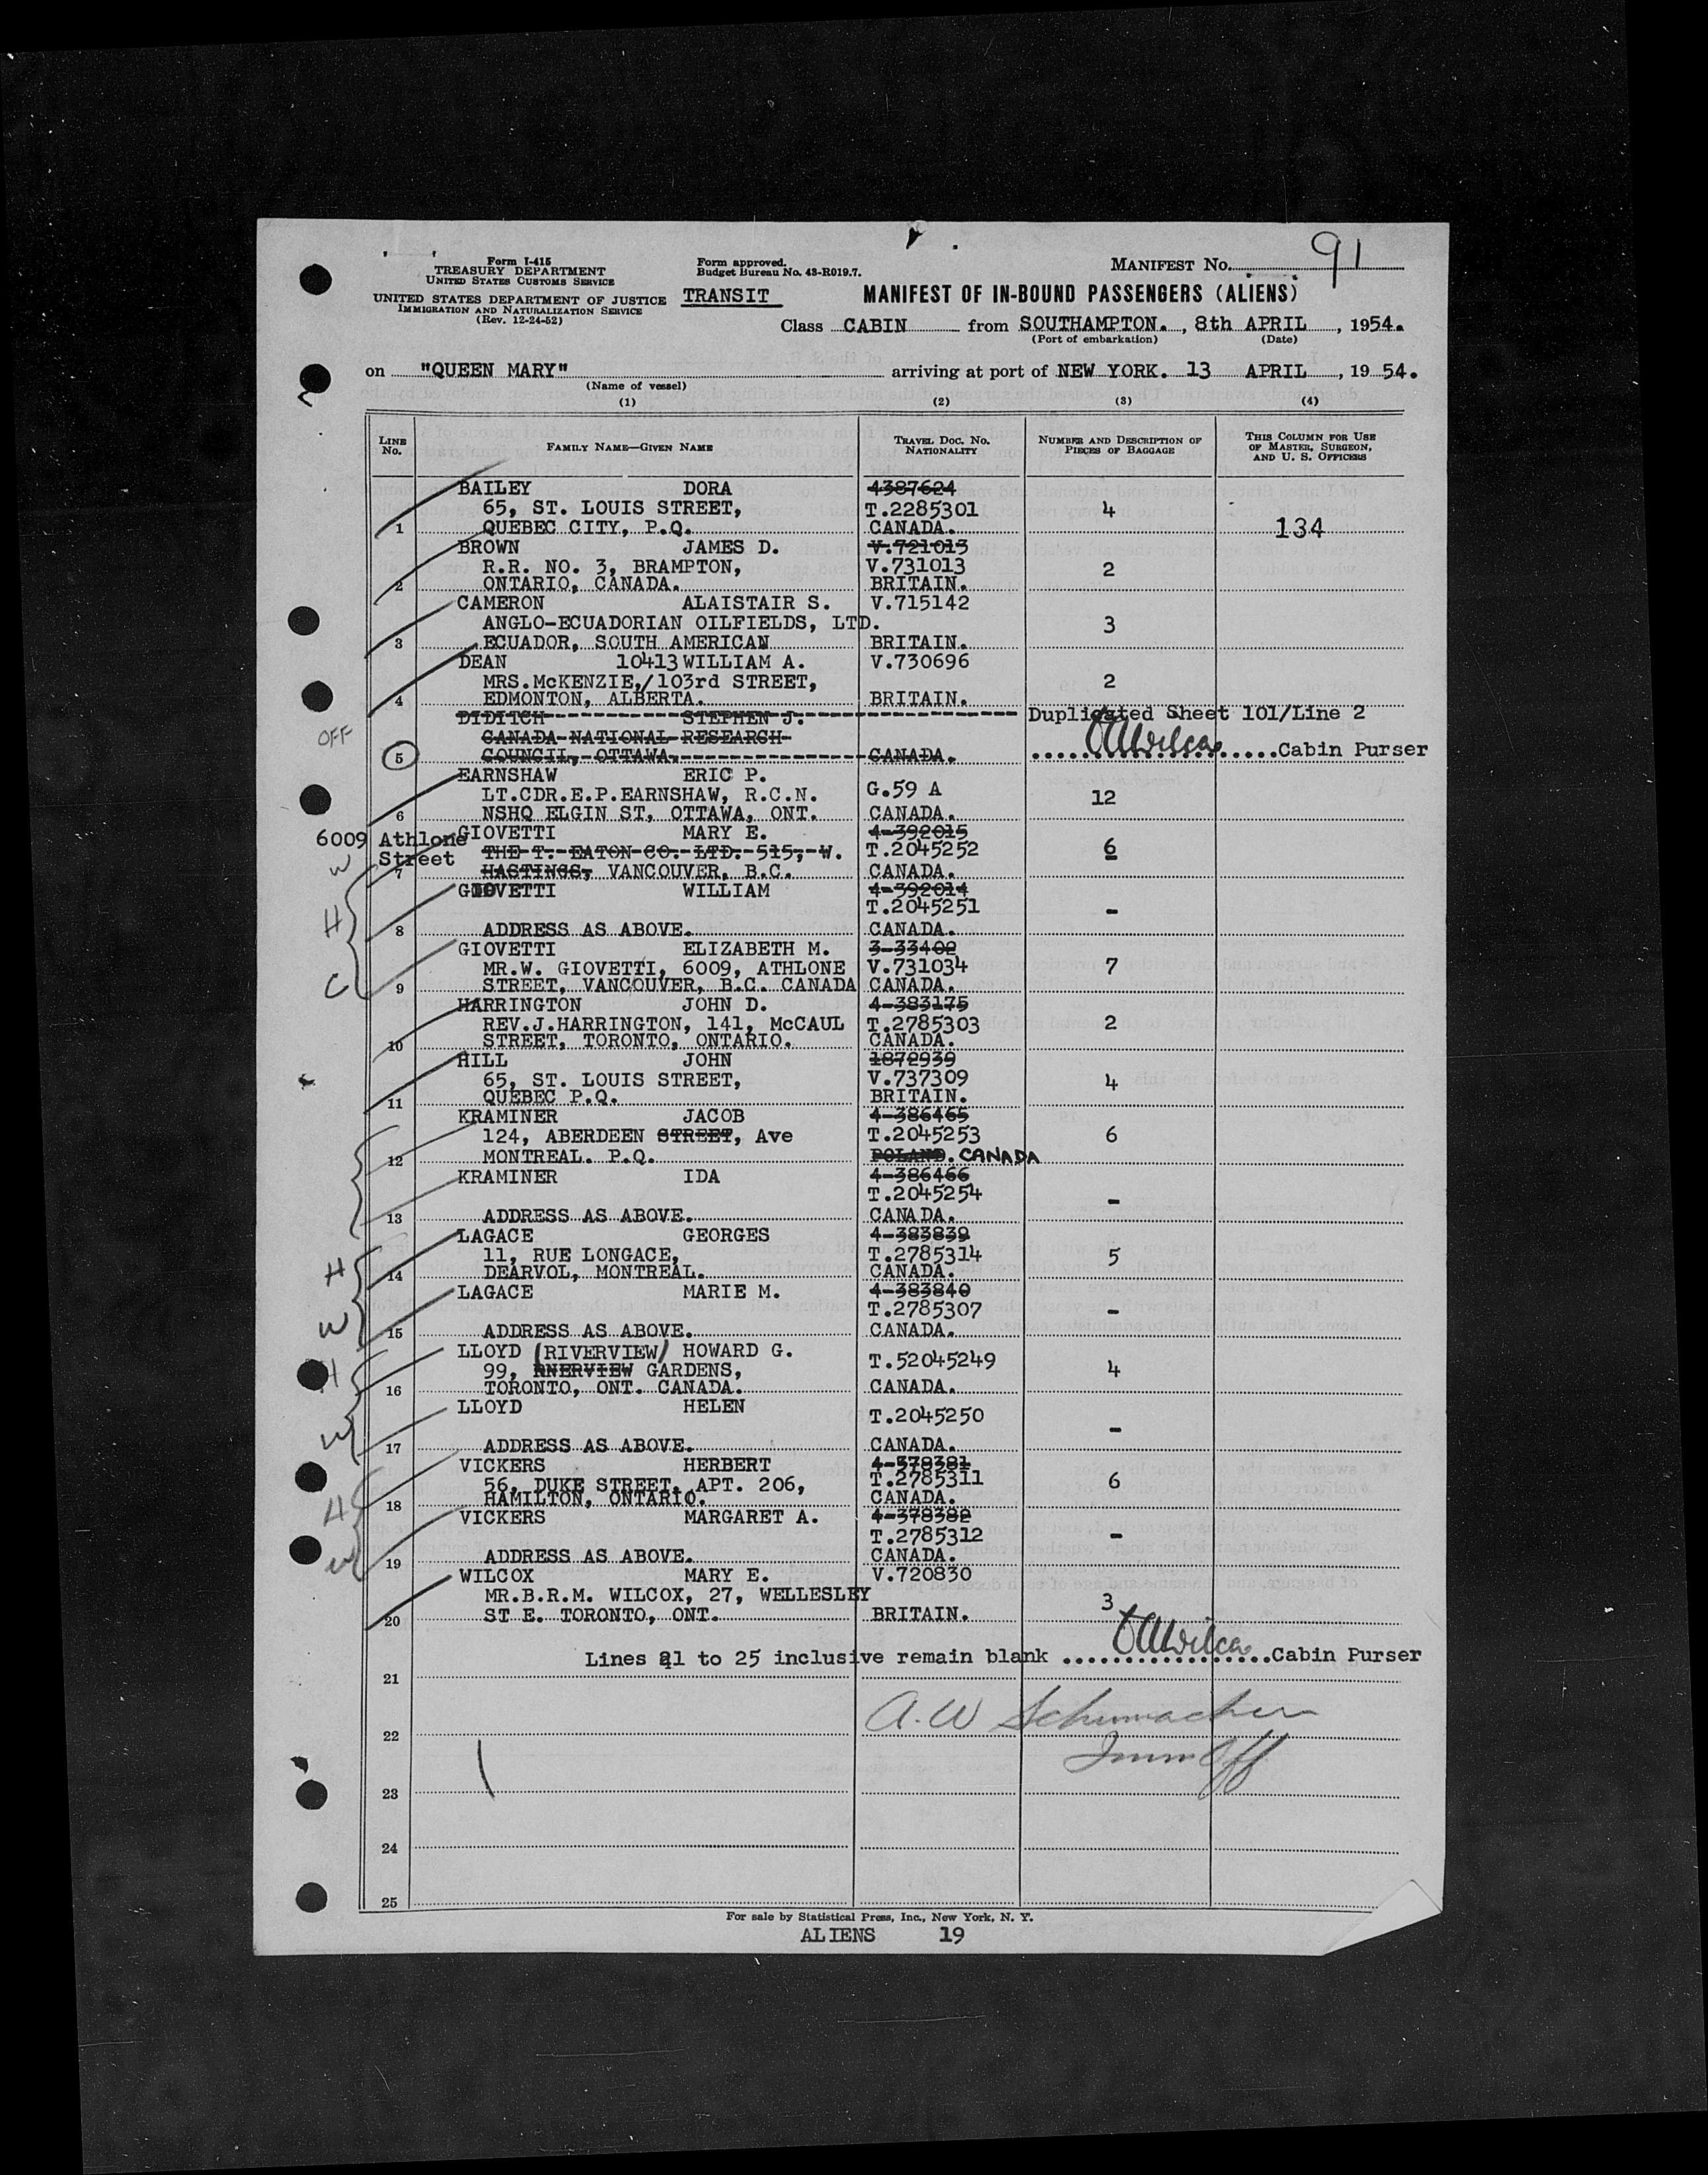 Form I-415
TREASURY DEPARTMENT
UNITED STATES CUSTOMS SERVICE
UNITED STATES DEPARTMENT OF JUSTICE
IMMIGRATION AND NATURALIZATION SERVICE
(Rev. 12-24-52)
Form approved.
Budget Bureau No. 43-R019.7.
TRANSIT
MANIFEST No. 91
MANIFEST OF IN-BOUND PASSENGERS (ALIENS)
Class CABIN from SOUTHAMPTON. , 8th APRIL , 1954.
(Port of embarkation) (Date)
on "QUEEN MARY" arriving at port of NEW YORK. 13 APRIL , 19 54.
(Name of vessel)
(1) (2) (3) (4)
LINE No. FAMILY NAME—GIVEN NAME TRAVEL DOC. No. NATIONALITY NUMBER AND DESCRIPTION OF PIECES OF BAGGAGE THIS COLUMN FOR USE OF MASTER, SURGEON, AND U. S. OFFICERS
BAILEY DORA 4387624
65, ST. LOUIS STREET, T.2285301 4
1 QUEBEC CITY, P.Q. CANADA. 134
BROWN JAMES D. V.721013
R.R. NO. 3, BRAMPTON, V.731013 2
2 ONTARIO, CANADA. BRITAIN.
CAMERON ALAISTAIR S. V.715142
ANGLO-ECUADORIAN OILFIELDS, LTD. 3
3 ECUADOR, SOUTH AMERICAN BRITAIN.
DEAN 10413 WILLIAM A. V.730696
MRS.McKENZIE,/103rd STREET, 2
4 EDMONTON, ALBERTA. BRITAIN.
DIDITCH STEPHEN J. Duplicated Sheet 101/Line 2
OFF CANADA NATIONAL RESEARCH
5 COUNCIL, OTTAWA, CANADA. Cabin Purser
EARNSHAW ERIC P.
LT.CDR.E.P.EARNSHAW, R.C.N. G.59 A 12
6 NSHQ ELGIN ST, OTTAWA, ONT. CANADA.
6009 Athlone GIOVETTI MARY E. 4-392015
Street THE T. EATON CO. LTD. 515, W. T.2045252 6
W 7 HASTINGS, VANCOUVER, B.C. CANADA.
GIOVETTI WILLIAM 4-392014
H T.2045251 -
8 ADDRESS AS ABOVE. CANADA.
GIOVETTI ELIZABETH M. 3-33402
MR.W. GIOVETTI, 6009, ATHLONE V.731034 7
C 9 STREET, VANCOUVER, B.C. CANADA CANADA.
HARRINGTON JOHN D. 4-383175
REV.J.HARRINGTON, 141, McCAUL T.2785303 2
10 STREET, TORONTO, ONTARIO. CANADA.
HILL JOHN 1872939
65, ST. LOUIS STREET, V.737309 4
11 QUEBEC P.Q. BRITAIN.
KRAMINER JACOB 4-386465
124, ABERDEEN STREET, Ave T.2045253 6
12 MONTREAL. P.Q. POLAND. CANADA
KRAMINER IDA 4-386466
T.2045254 -
13 ADDRESS AS ABOVE. CANADA.
LAGACE GEORGES 4-383839
11, RUE LONGACE, T.2785314 5
H 14 DEARVOL, MONTREAL. CANADA.
LAGACE MARIE M. 4-383840
T.2785307 -
W 15 ADDRESS AS ABOVE. CANADA.
LLOYD (RIVERVIEW) HOWARD G.
99, GARDENS, T.52045249 4
H 16 TORONTO, ONT. CANADA. CANADA.
LLOYD HELEN T.2045250
W -
17 ADDRESS AS ABOVE. CANADA.
VICKERS HERBERT 4-378381
56, DUKE STREET, APT. 206, T.2785311 6
H 18 HAMILTON, ONTARIO. CANADA.
VICKERS MARGARET A. 4-378382
T.2785312 -
W 19 ADDRESS AS ABOVE. CANADA.
WILCOX MARY E. V.720830
MR.B.R.M. WILCOX, 27, WELLESLEY 3
20 ST E. TORONTO, ONT. BRITAIN.
Lines 21 to 25 inclusive remain blank Cabin Purser
21
A.W Schumacher
22
Imm Off
23
24
25
For sale by Statistical Press, Inc., New York, N. Y.
ALIENS 19